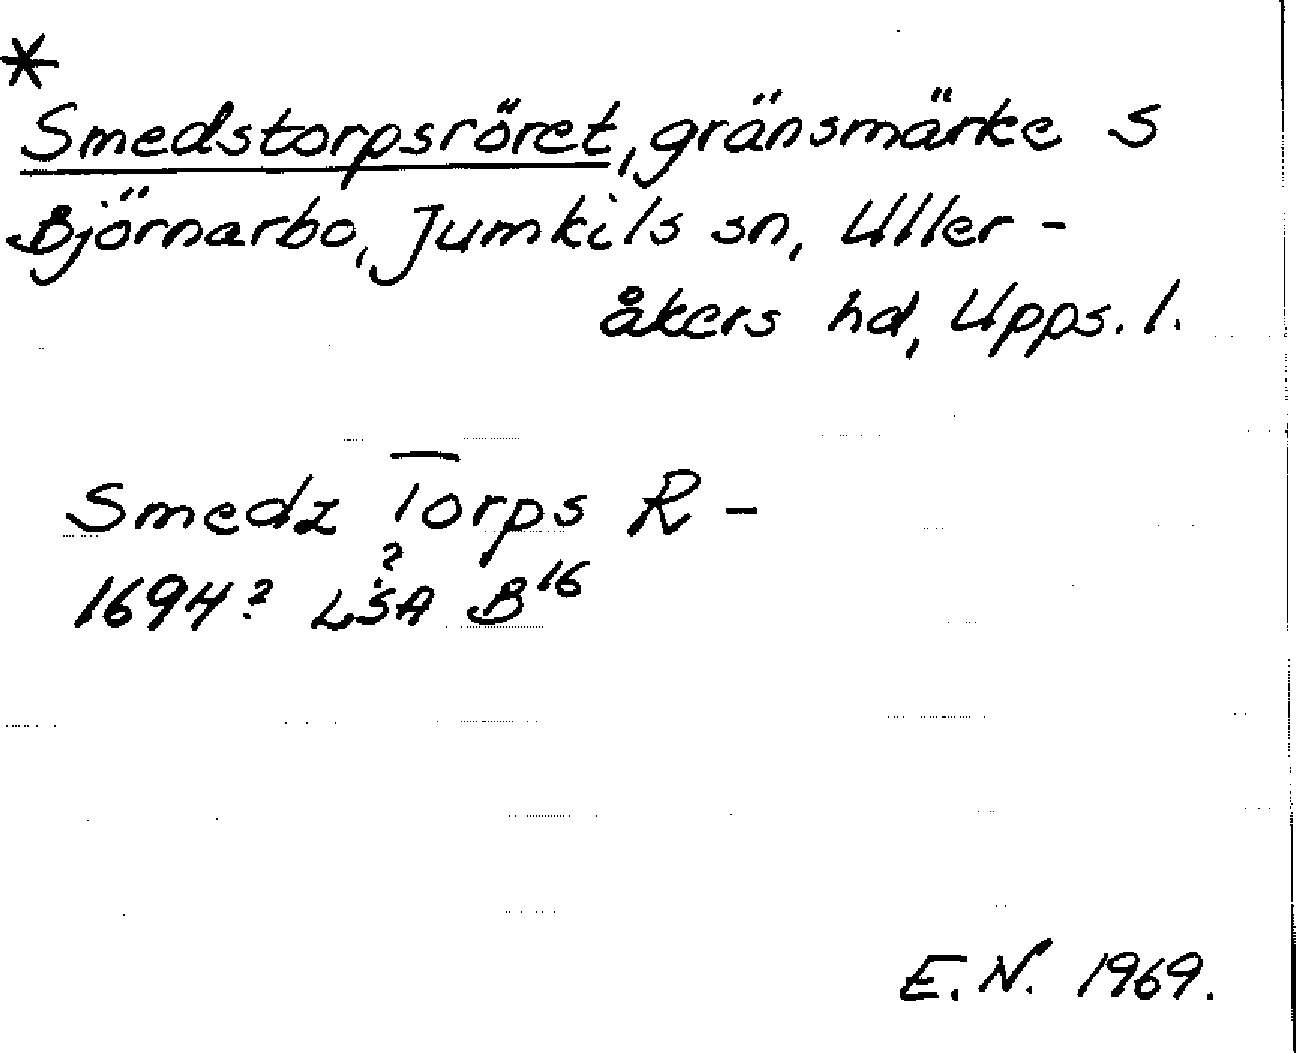 *
Smedstorpsröret, gränsmärke S
Björnarbo, Jumkils sn, Uller-
åkers hd, Upps. l.
Smedz Torps R -
?
1694? LSA B16
E. N. 1969.